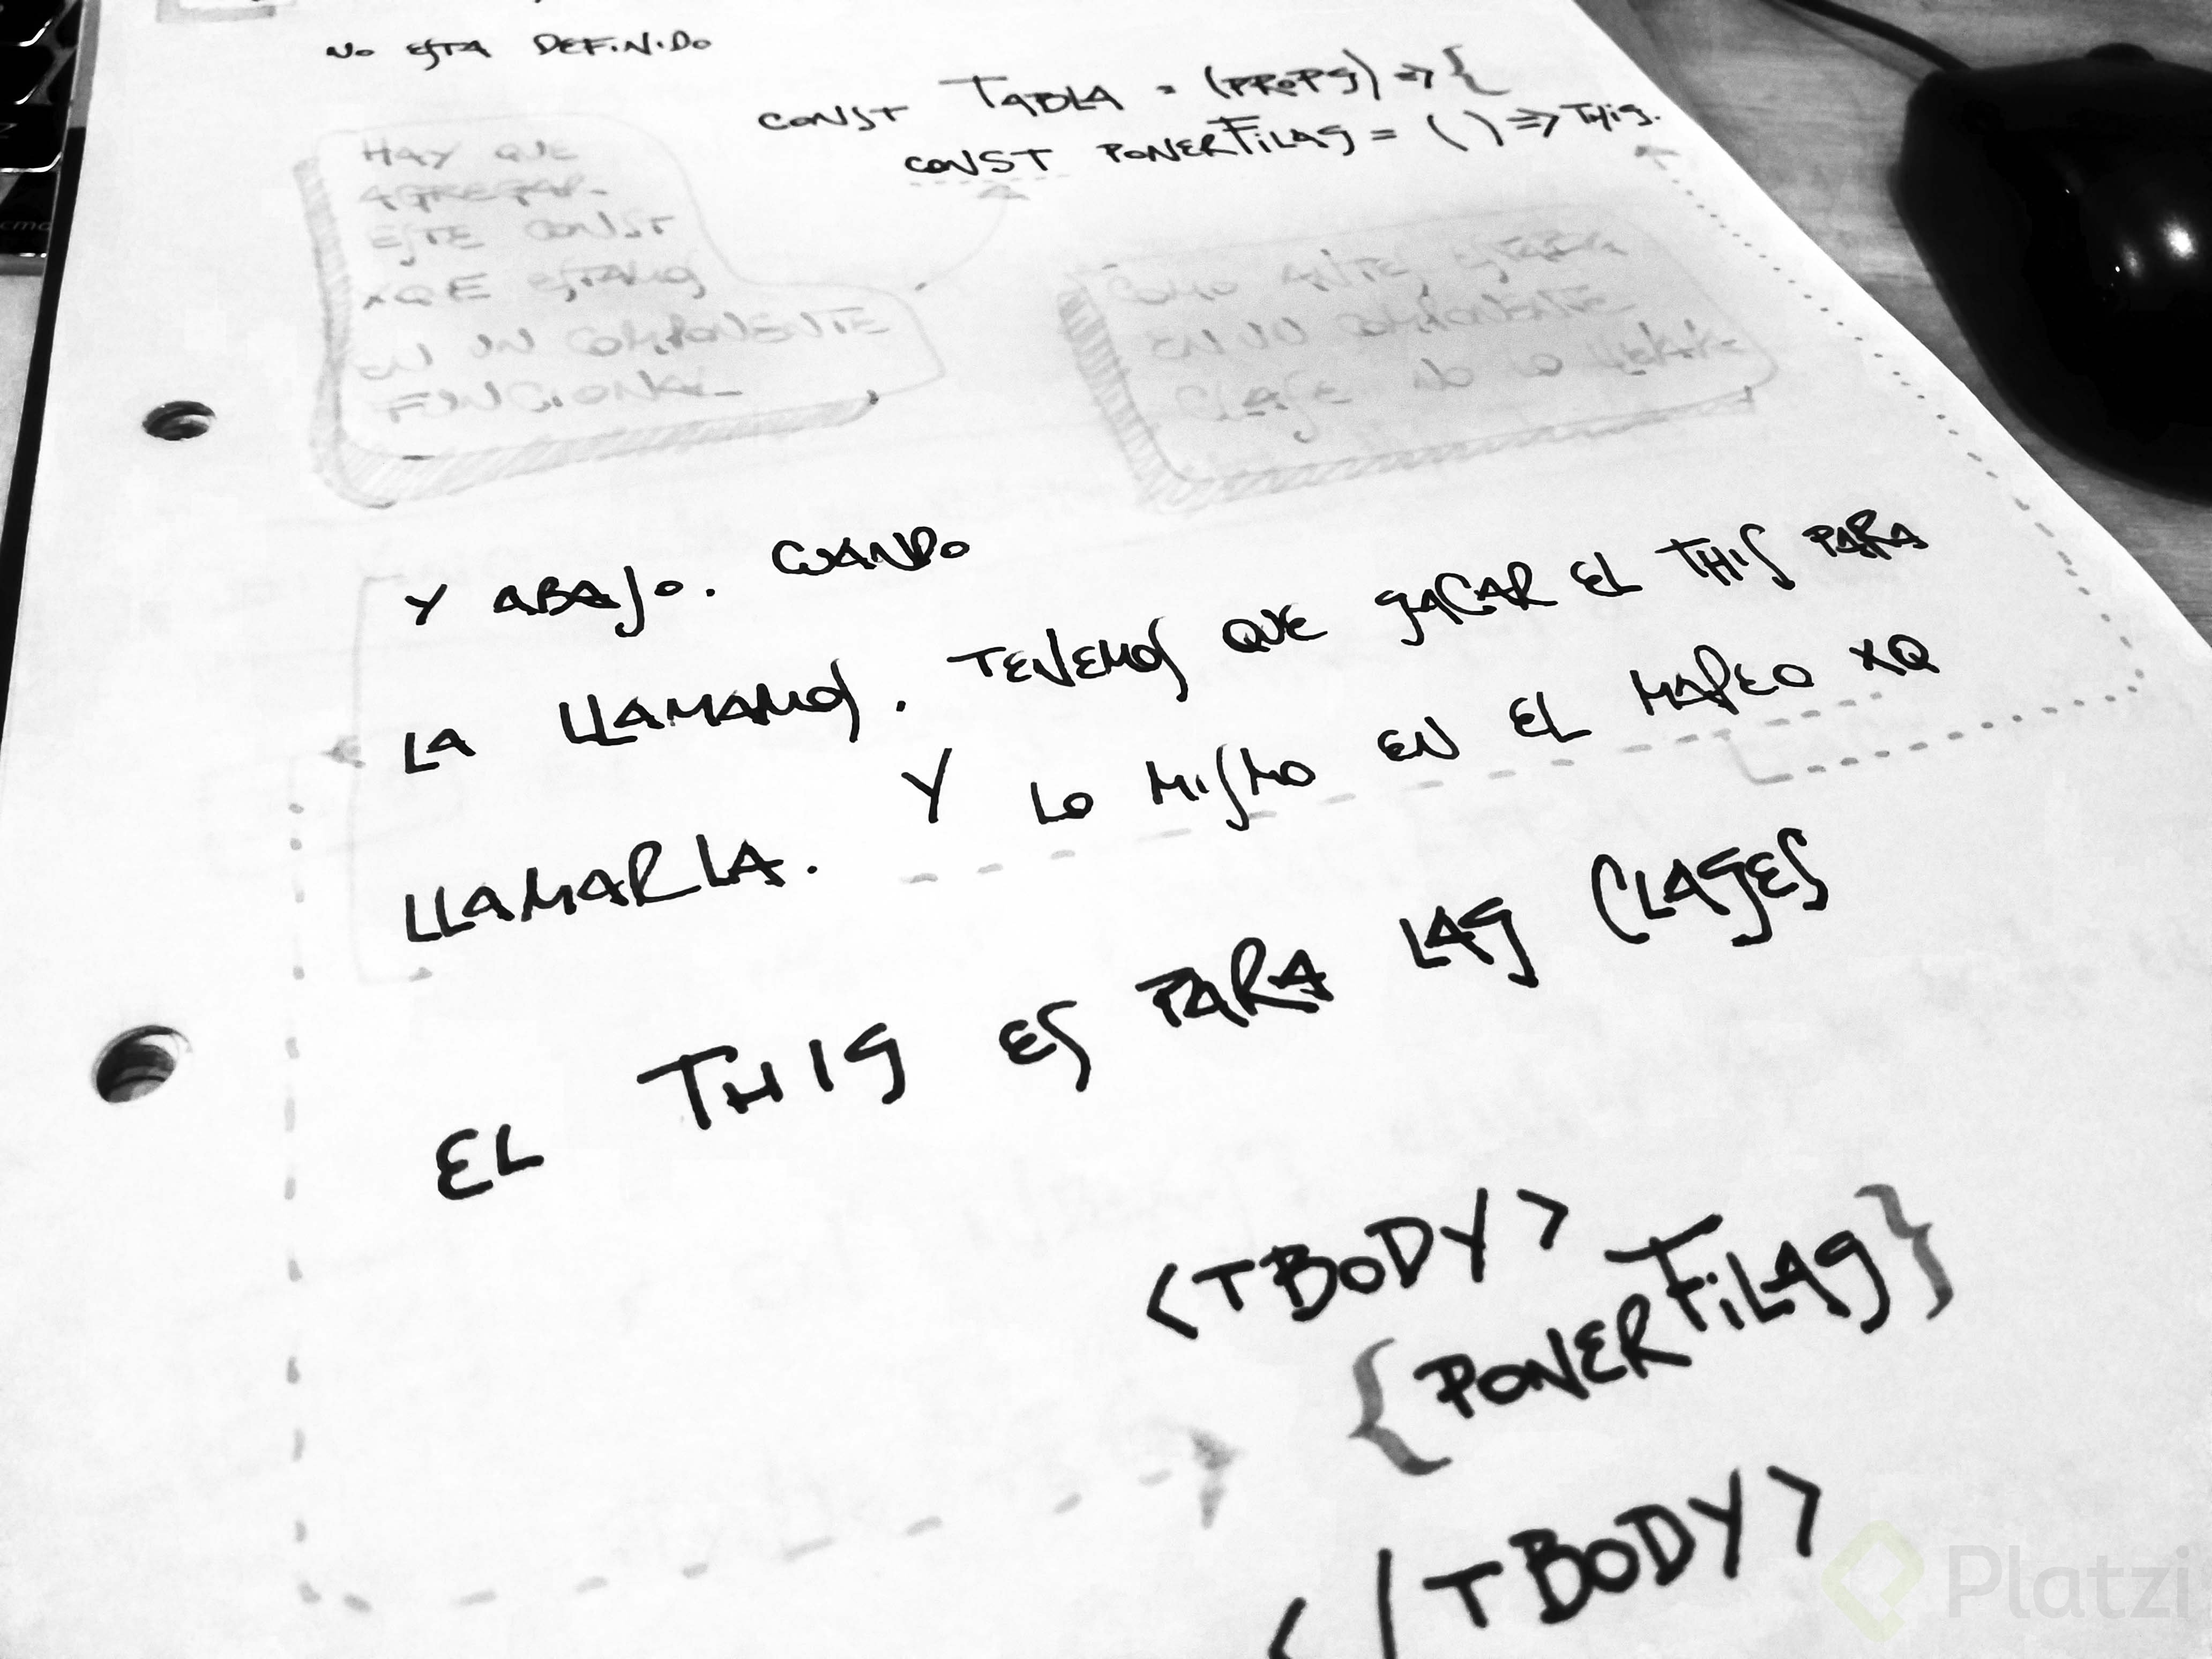 NO ESTA DEFINIDO
CONST TABLA = (PROPS) => {
CONST PONERFILAS = ( ) => THIS.
HAY QUE
AGREGAR
ESTE CONST
XQE ESTAMOS
EN UN COMPONENTE
FUNCIONAL
COMO ANTES ESTABA
EN UN COMPONENTE
CLASE NO LO
Y ABAJO. CUANDO
LA LLAMAMOS. TENEMOS QUE SACAR EL THIS PARA
LLAMARLA. Y LO MISMO EN EL MAPEO XQ
EL THIS ES PARA LAS CLASES
<TBODY>
{PONERFILAS}
</TBODY>
Platzi
cmd